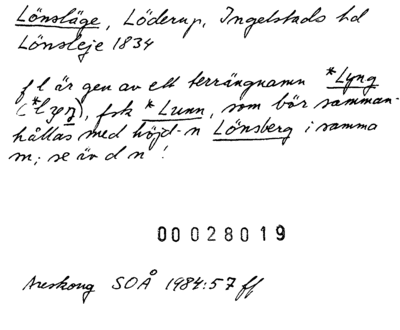 Lönsläge, Löderup, Ingelstads hd
Lönsleje 1834
f l är gen av ett terrängnamn *Lyng
(*lyŋ), fsk *Lunn, som bör samman-
hållas med höjd-n Lönsberg i samma
sn; se äv d n!
00028019
Areskoug SOÅ 1984:57 ff